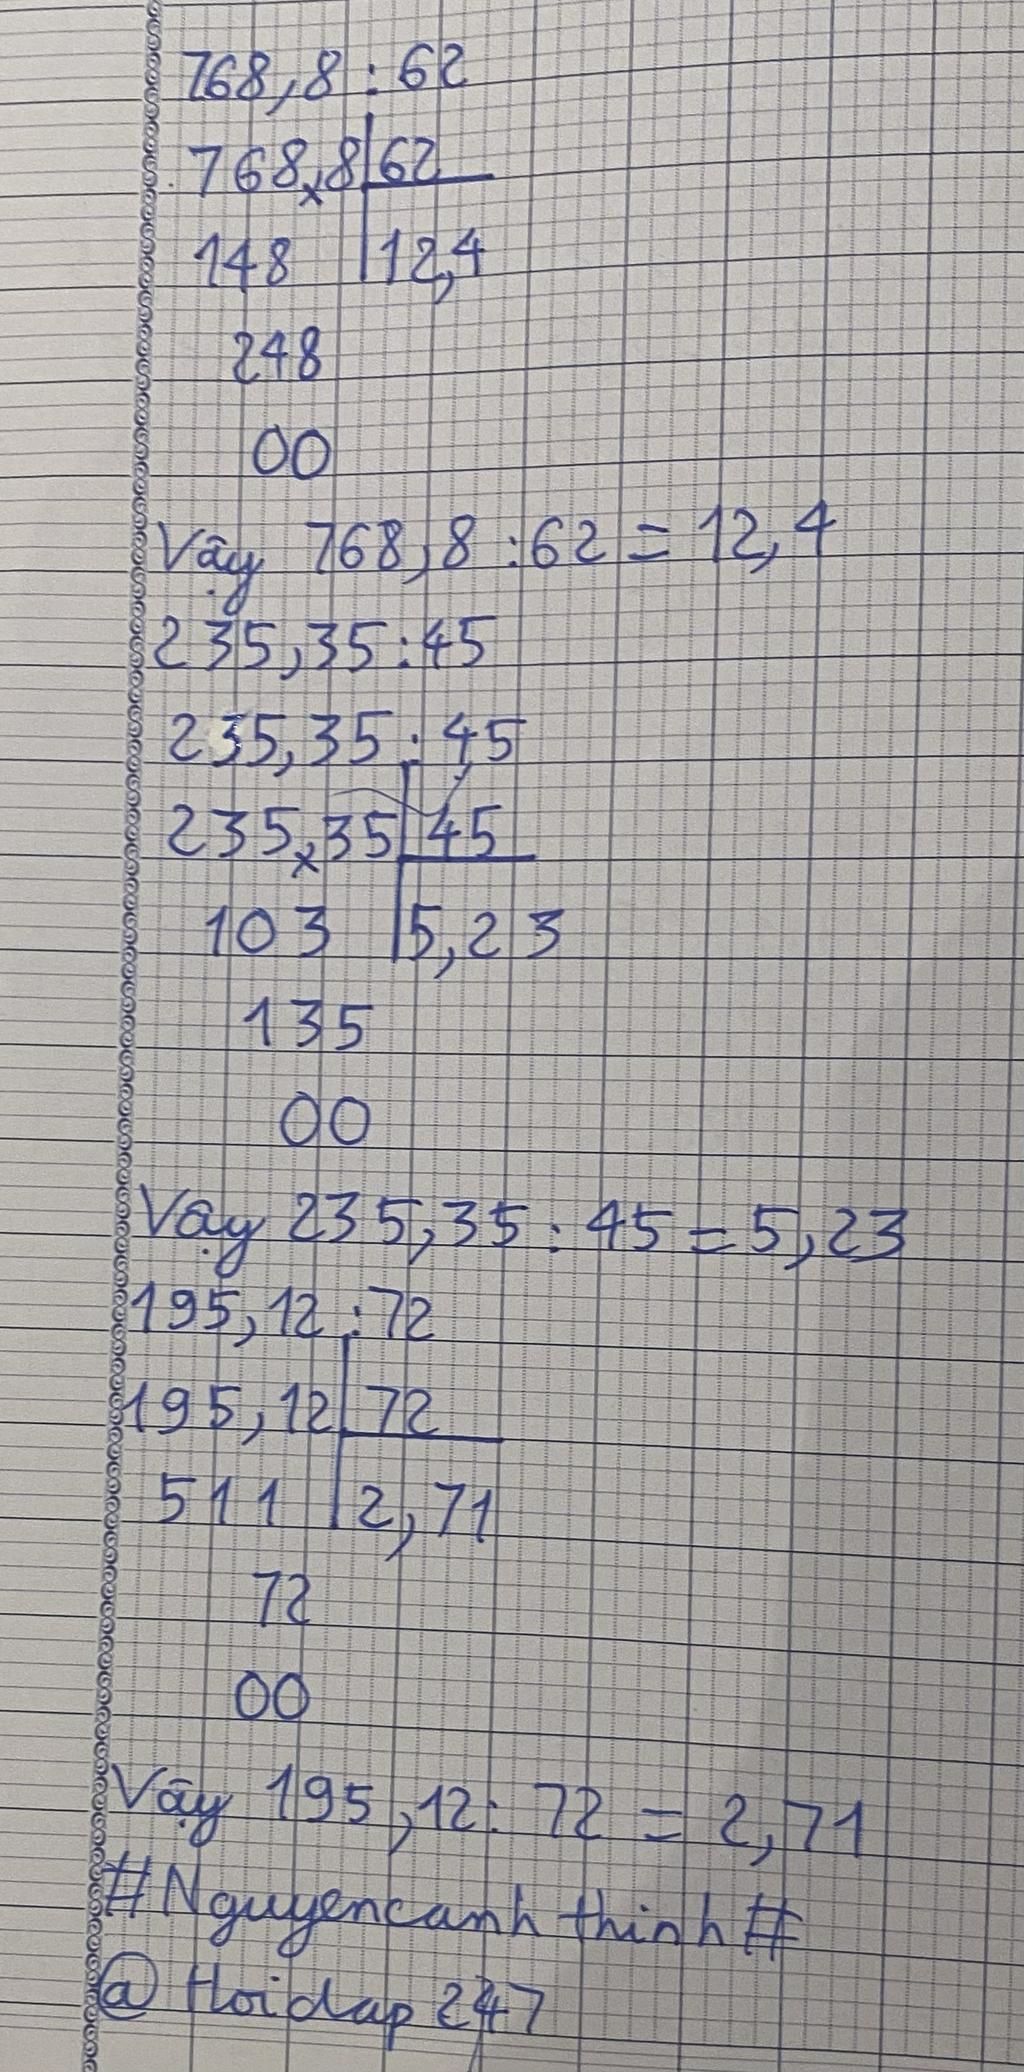 768,8 : 62
768,8 62
148 12,4
248
00
Vậy 768,8 : 62 = 12,4
235,35 : 45
235,35 : 45
235,35 45
103 5,23
135
00
Vậy 235,35 : 45 = 5,23
195,12 : 72
195,12 72
511 2,71
72
00
Vậy 195,12 : 72 = 2,71
#Nguyencanh thinh#
@ Hoidap 247